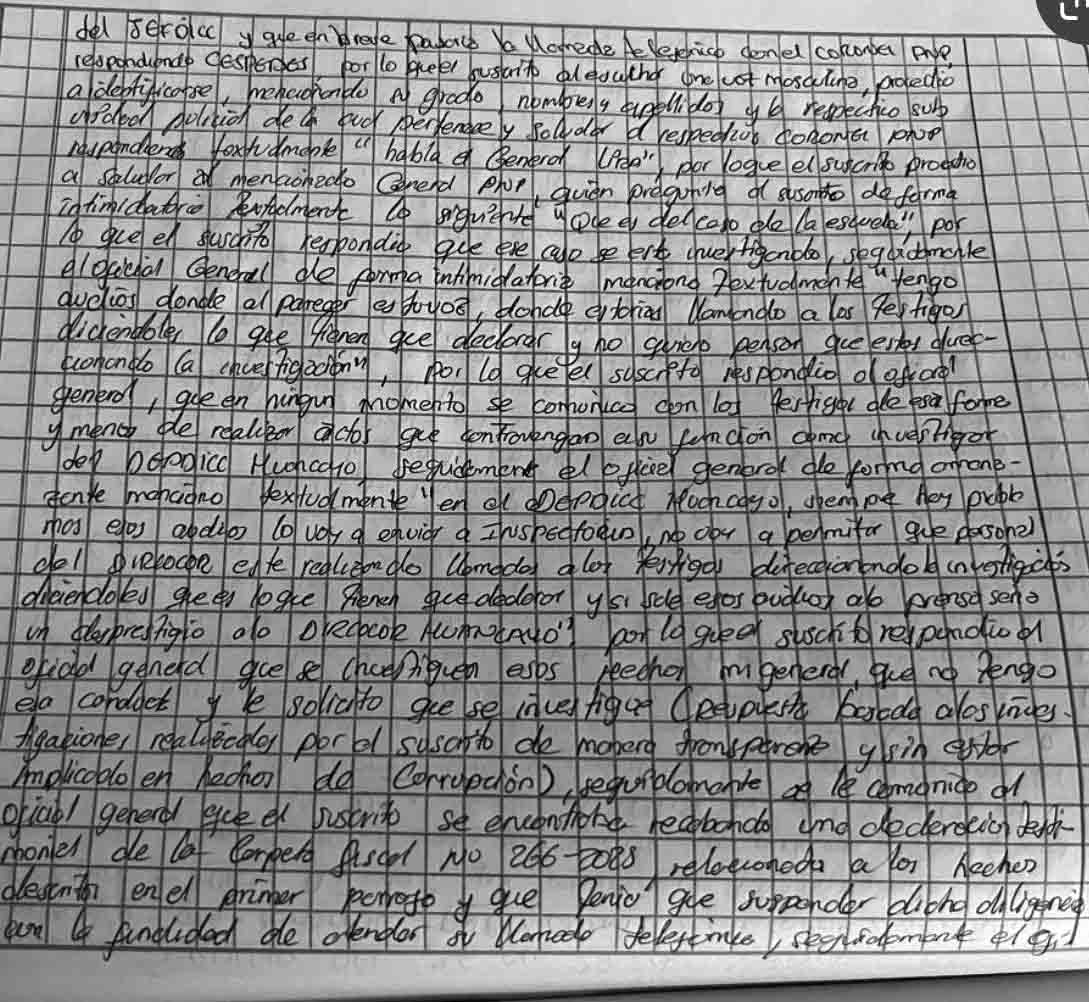 del servicio y que en breve pasará la llamada telefónica con el coronel PNP
respondiendo despues por lo que el suscrito al escuchar una voz masculina, procedio
a identificarse, mencionando su grado, nombres y apellidos y la respectiva sub
unidad policial de la cual pertenece y saludar al respectivo coronel PNP
respondiendo textualmente "habla el General", por lo que el suscrito procedio
a saludar al mencionado General PNP, quien pregunta al suscrito de forma
intimidatoria textualmente lo siguiente "Que es del caso de la escuela", por
lo que el suscrito respondio que ese caso se está investigando, seguidamente
el oficial General de forma intimidatoria menciono textualmente "tengo
audios donde al parecer es tu voz, donde estarias llamando a los testigos
diciendoles lo que tienen que declarar y no quiero pensar que estas direc-
cionando la investigación", por lo que el suscrito respondio al oficial
general, que en ningun momento se comunico con los testigos de esa forma
y menos de realizar actos que contravengan a su función como investigador
del DEPDICC Huancayo, seguidamente el oficial general de forma amena-
zante menciono textualmente "en el DEPDICC Huancayo, siempre hay proble
mas esos audios lo voy a enviar a Inspectoria, no voy a permitir que personal
del DIRCOCOR este realizando llamadas a los testigos direccionando la investigación
diciendoles que es lo que tienen que declarar y si sale esos audios a la prensa seria
un desprestigio a la DIRCOCOR HUANCAYO", por lo que el suscrito respondio al
oficial general que se investiguen esos hechos mi general, que no tengo
esa conducta y le solicito que se investigue (Respuesta basada a las inves-
tigaciones realizadas por el suscrito de manera transparente y sin estar
implicado en hechos de Corrupción), seguidamente se le comunico al
oficial general que el suscrito se encontraba recabando una declaración testi-
monial de la Carpeta fiscal NO 266-2025, relacionada a los hechos
descritos en el primer parrafo y que tenia que suspender dicha diligencia
con la finalidad de atender su llamada telefonica, seguidamente el g.